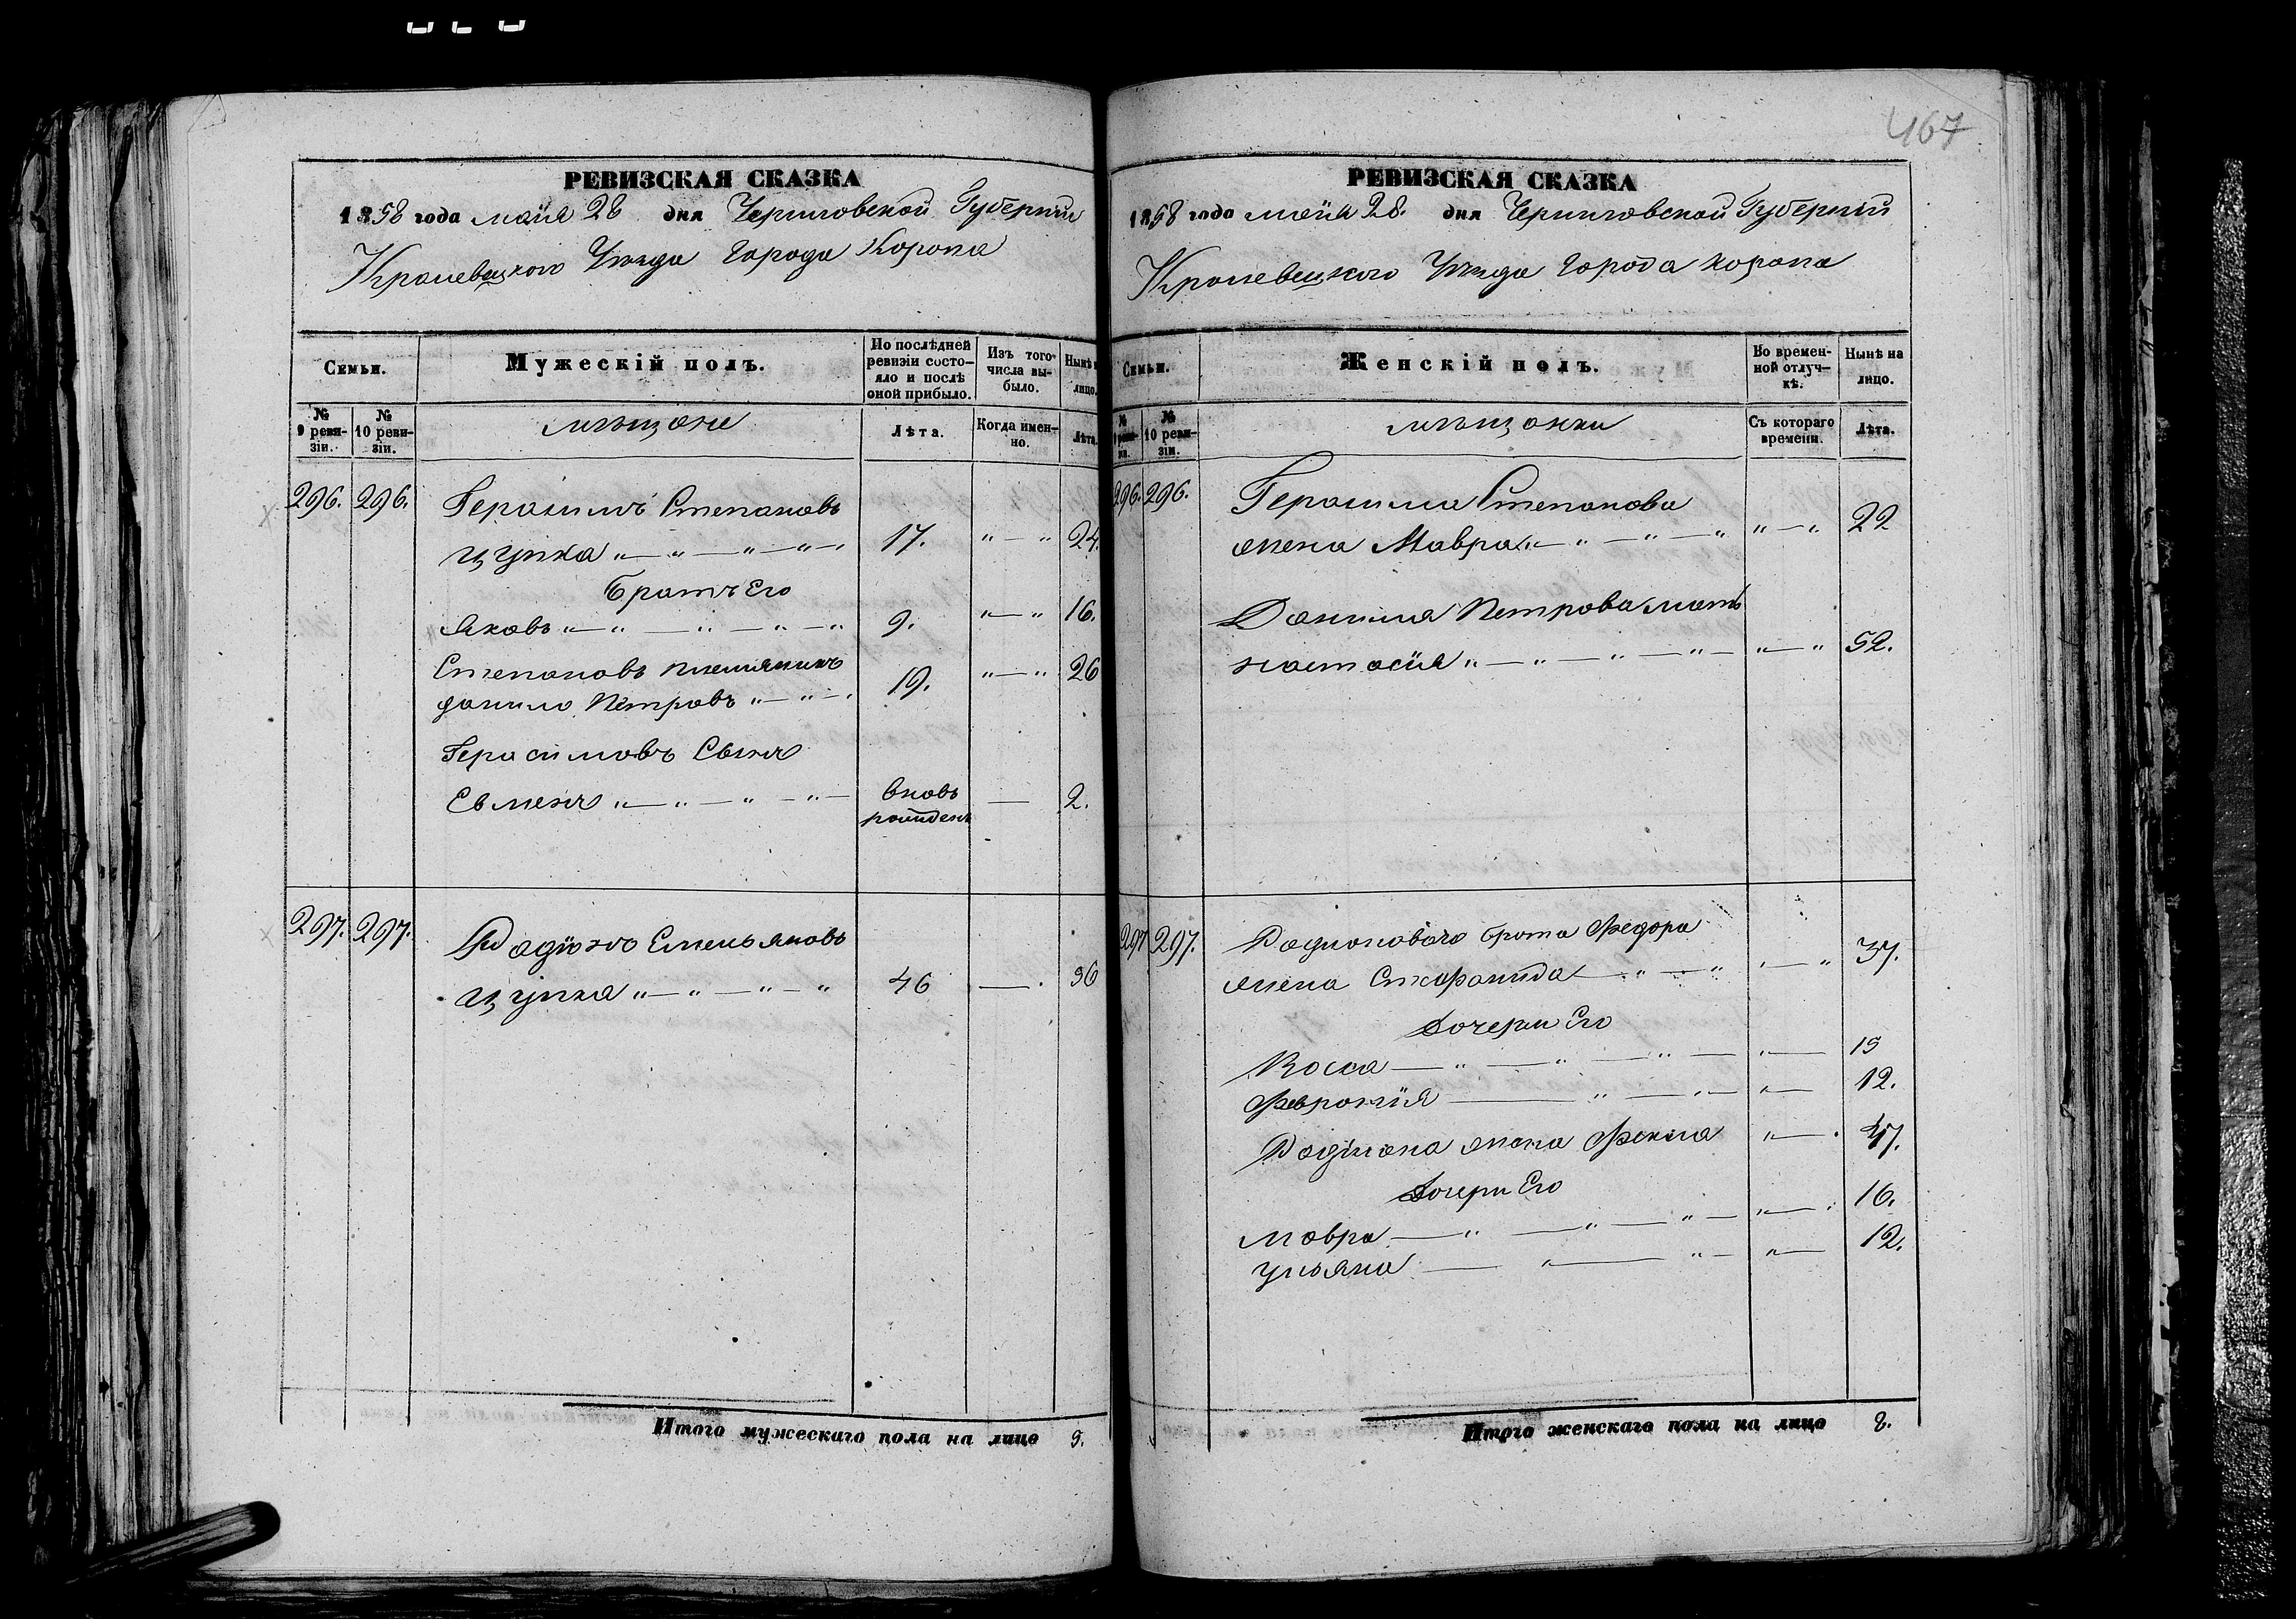 467
РЕВИЗСКАЯ СКАЗКА
1858 года майя 28 дня Черниговской Губернии
Кролевецкого Уезда Города Коропа
Семьи.
Мужескій полъ.
По послѣдней ревизіи состояло и послѣ оной прибыло.
Изъ того числа выбыло.
Нынѣ на лицо.
№ 9 ревизіи.
№ 10 ревизіи.
мещане
Лѣта.
Когда именно.
Лѣта.
296. 296. Герасимъ Степановъ
Цупка 17. 24.
Братъ Его
Яковъ 9. 16.
Степановъ племяникъ
данило Петровъ 19. 26
Герасимовъ Сынъ
Евменъ вновь рожденъ 2.
297. 297. Радіонъ Емельяновъ
Цупка 46 56
Итого мужескаго пола на лицо 5.
РЕВИЗСКАЯ СКАЗКА
1858 года майя 28. дня Черниговской Губерніи
Кролевецкого Уезда Города коропа
Семьи.
Женскій полъ.
Во временной отлучкѣ.
Нынѣ на лицо.
№ 9 ревизіи.
№ 10 ревизіи.
мещанки
Съ котораго времени.
Лѣта.
296. 296. Герасима Степанова
жена Мавра 22
Данила Петрова мать
настасія 52.
297 297. Радионового брата Федора
жена 37.
дочери Его
15
Феврония 12.
Радіиона жена Фекла 47.
дочери Его
мавра 16.
ульяна 12.
Итого женскаго пола на лицо 8.